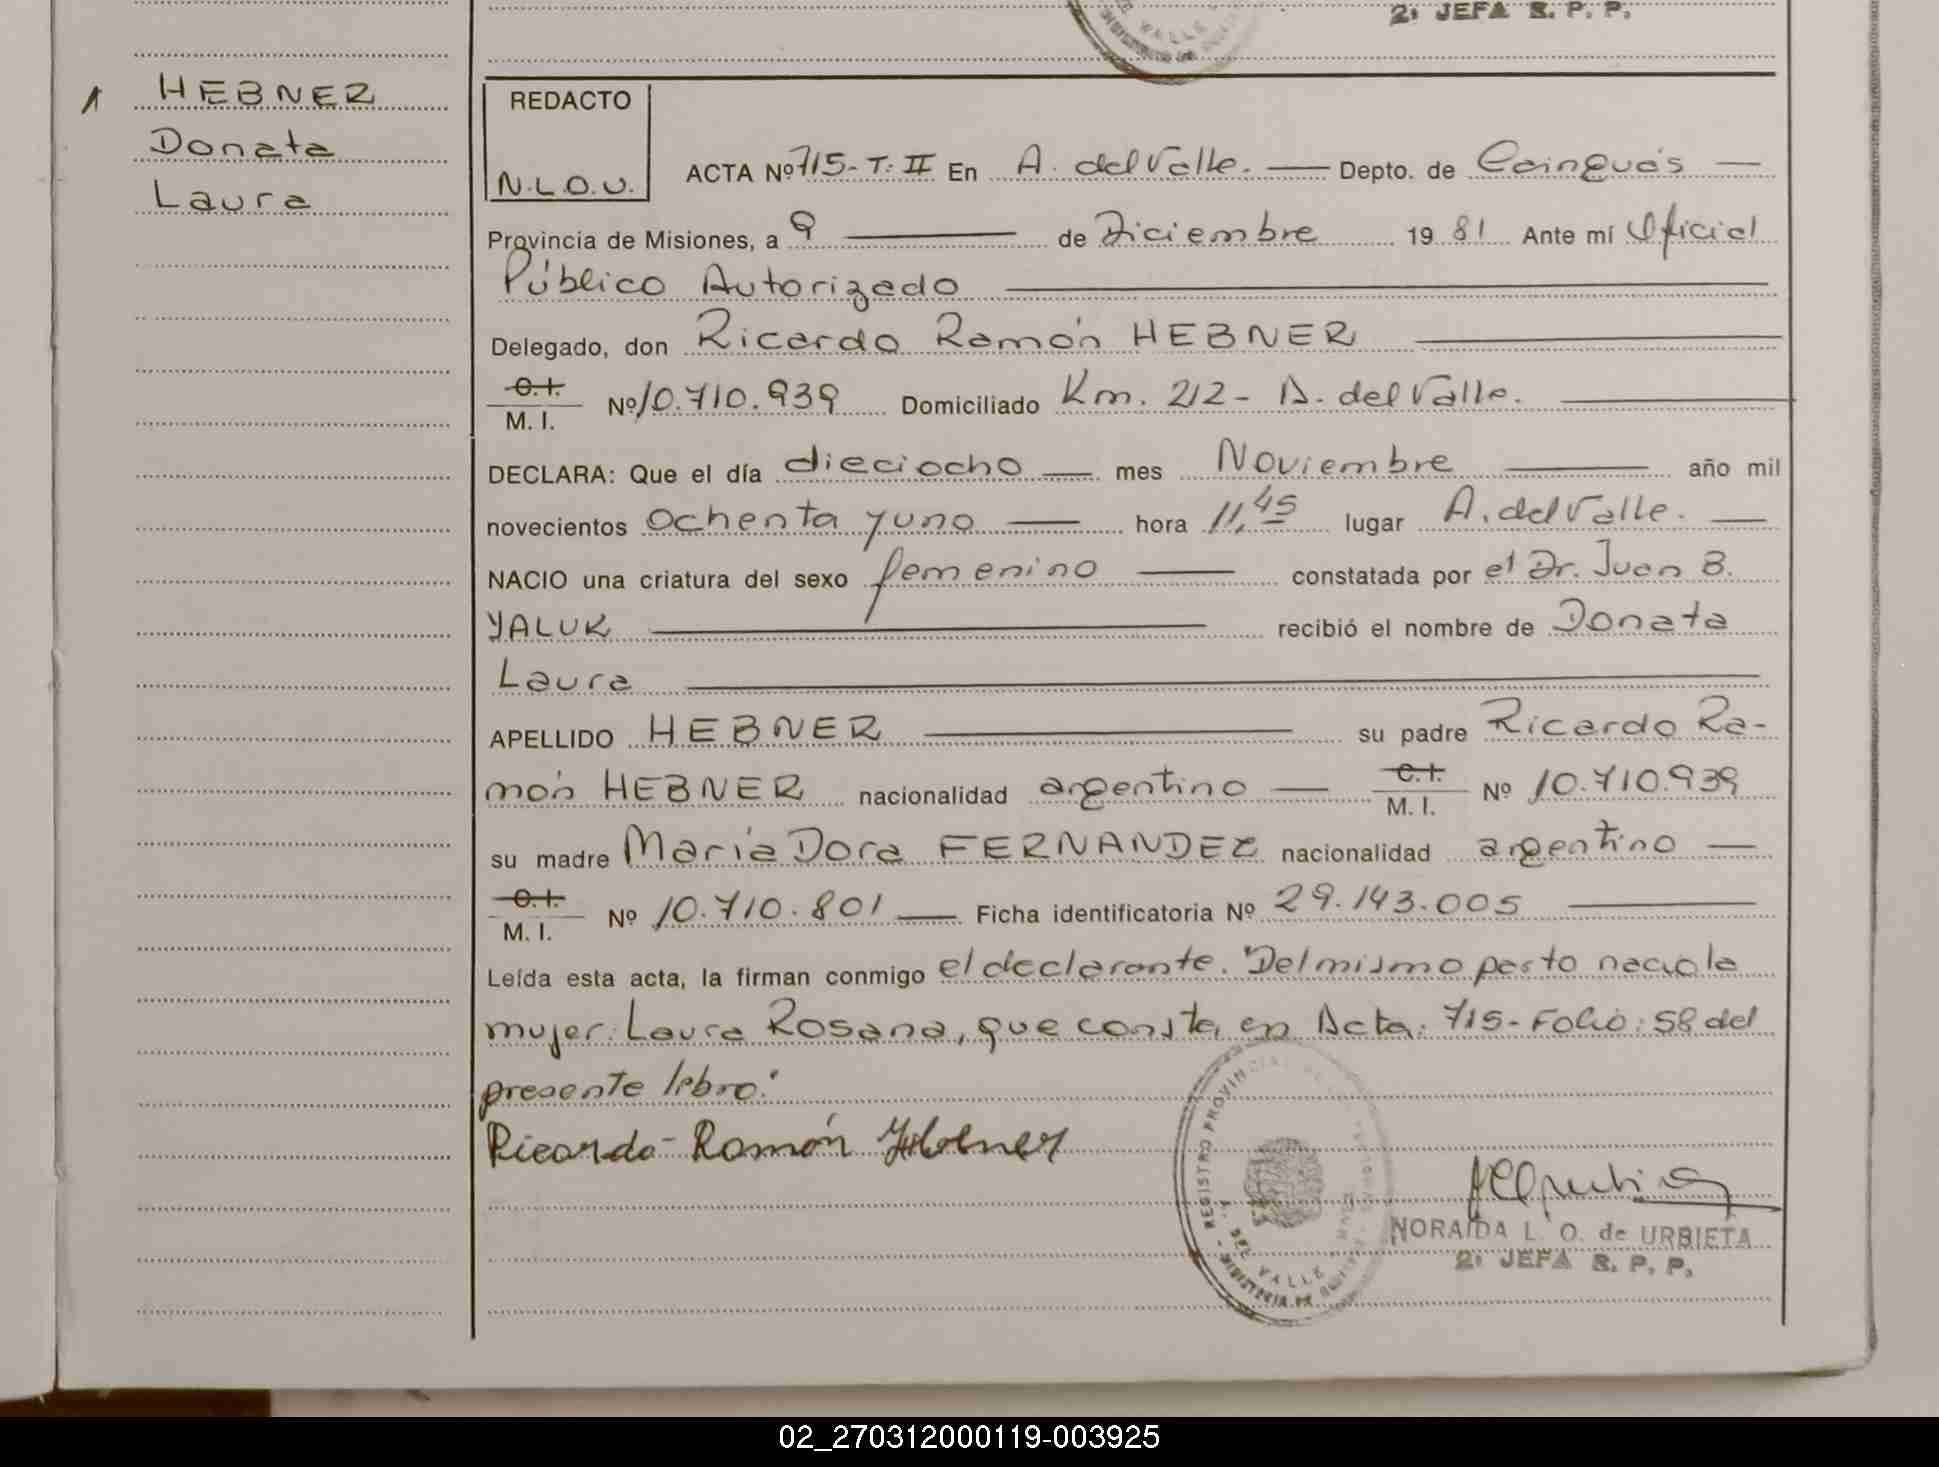 2: JEFA R. P. P.
1 HEBNER
Donata
Laura
REDACTO
N.L.O.U.
ACTA Nº 715-T: II En A. del Valle. Depto. de Cainguás
Provincia de Misiones, a 9 de Diciembre 1981 Ante mí Oficial
Público Autorizado
Delegado, don Ricardo Ramón HEBNER
C.I.
M. I. Nº 10.710.939 Domiciliado Km. 212 - A. del Valle.
DECLARA: Que el día dieciocho mes Noviembre año mil
novecientos ochenta y uno hora 11,45 lugar A. del Valle.
NACIO una criatura del sexo femenino constatada por el Dr. Juan B.
YALUK recibió el nombre de Donata
Laura
APELLIDO HEBNER su padre Ricardo Ra-
món HEBNER nacionalidad argentino C.I. M. I. Nº 10.710.939
su madre María Dora FERNANDEZ nacionalidad argentino
C.I.
M. I. Nº 10.710.801 Ficha identificatoria Nº 29.143.005
Leída esta acta, la firman conmigo el declarante. "Del mismo parto nació la
mujer: Laura Rosana, que consta en Acta: 715 - Folio: 58 del
presente libro."
Ricardo Ramón Hebner
REGISTRO PROVINCIAL
A. DEL VALLE
NORAIDA L. O. de URBIETA
2: JEFA R. P. P.
02_270312000119-003925